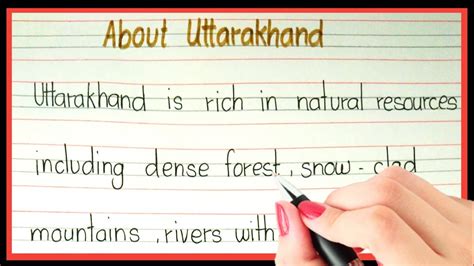 About Uttarakhand
Uttarakhand is rich in natural resources
including dense forest, snow-clad
mountains, rivers with